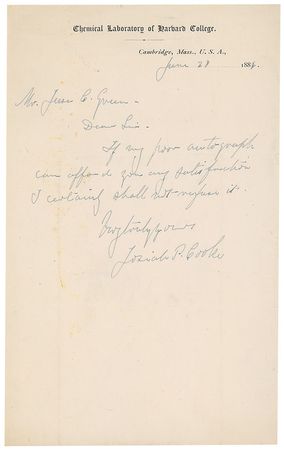 Chemical Laboratory of Harvard College.
Cambridge, Mass., U. S. A.,
June 28 1886.
Mr. Jesse C. Green.
Dear Sir.
If my poor autograph
can afford you any satisfaction
I certainly shall not refuse it.
Very truly yours
Josiah P. Cooke